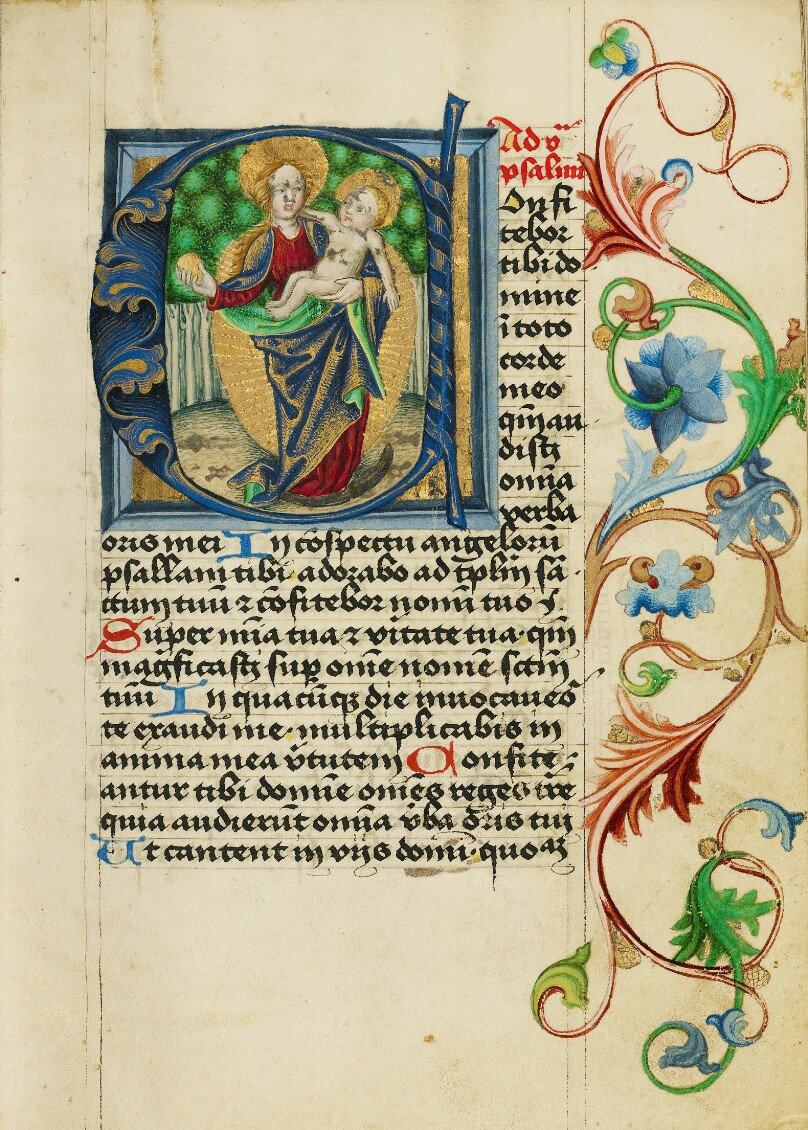 Ad v
psalm
Onfi
tebor
tibi do
mine
ī toto
corde
meo
qm̄ au
disti
omīa
verba
oris mei In cōspectu angelorū
psallam tibi adorabo ad tp̄lm sā
ctum tuū ⁊ cōfitebor nomī tuo
Super mīa tua ⁊ vītate tua qm̄
magficasti sup om̄e nomē sctm̄
tuū In quacūqꝫ die invocavero
te exaudi me multiplicabis in
anima mea v̄tutem Confite
antur tibi domīe om̄es reges tr̄e
quia audierūt omīa v̄ba oris tui
Ut cantent in vijs domī quoꝫ